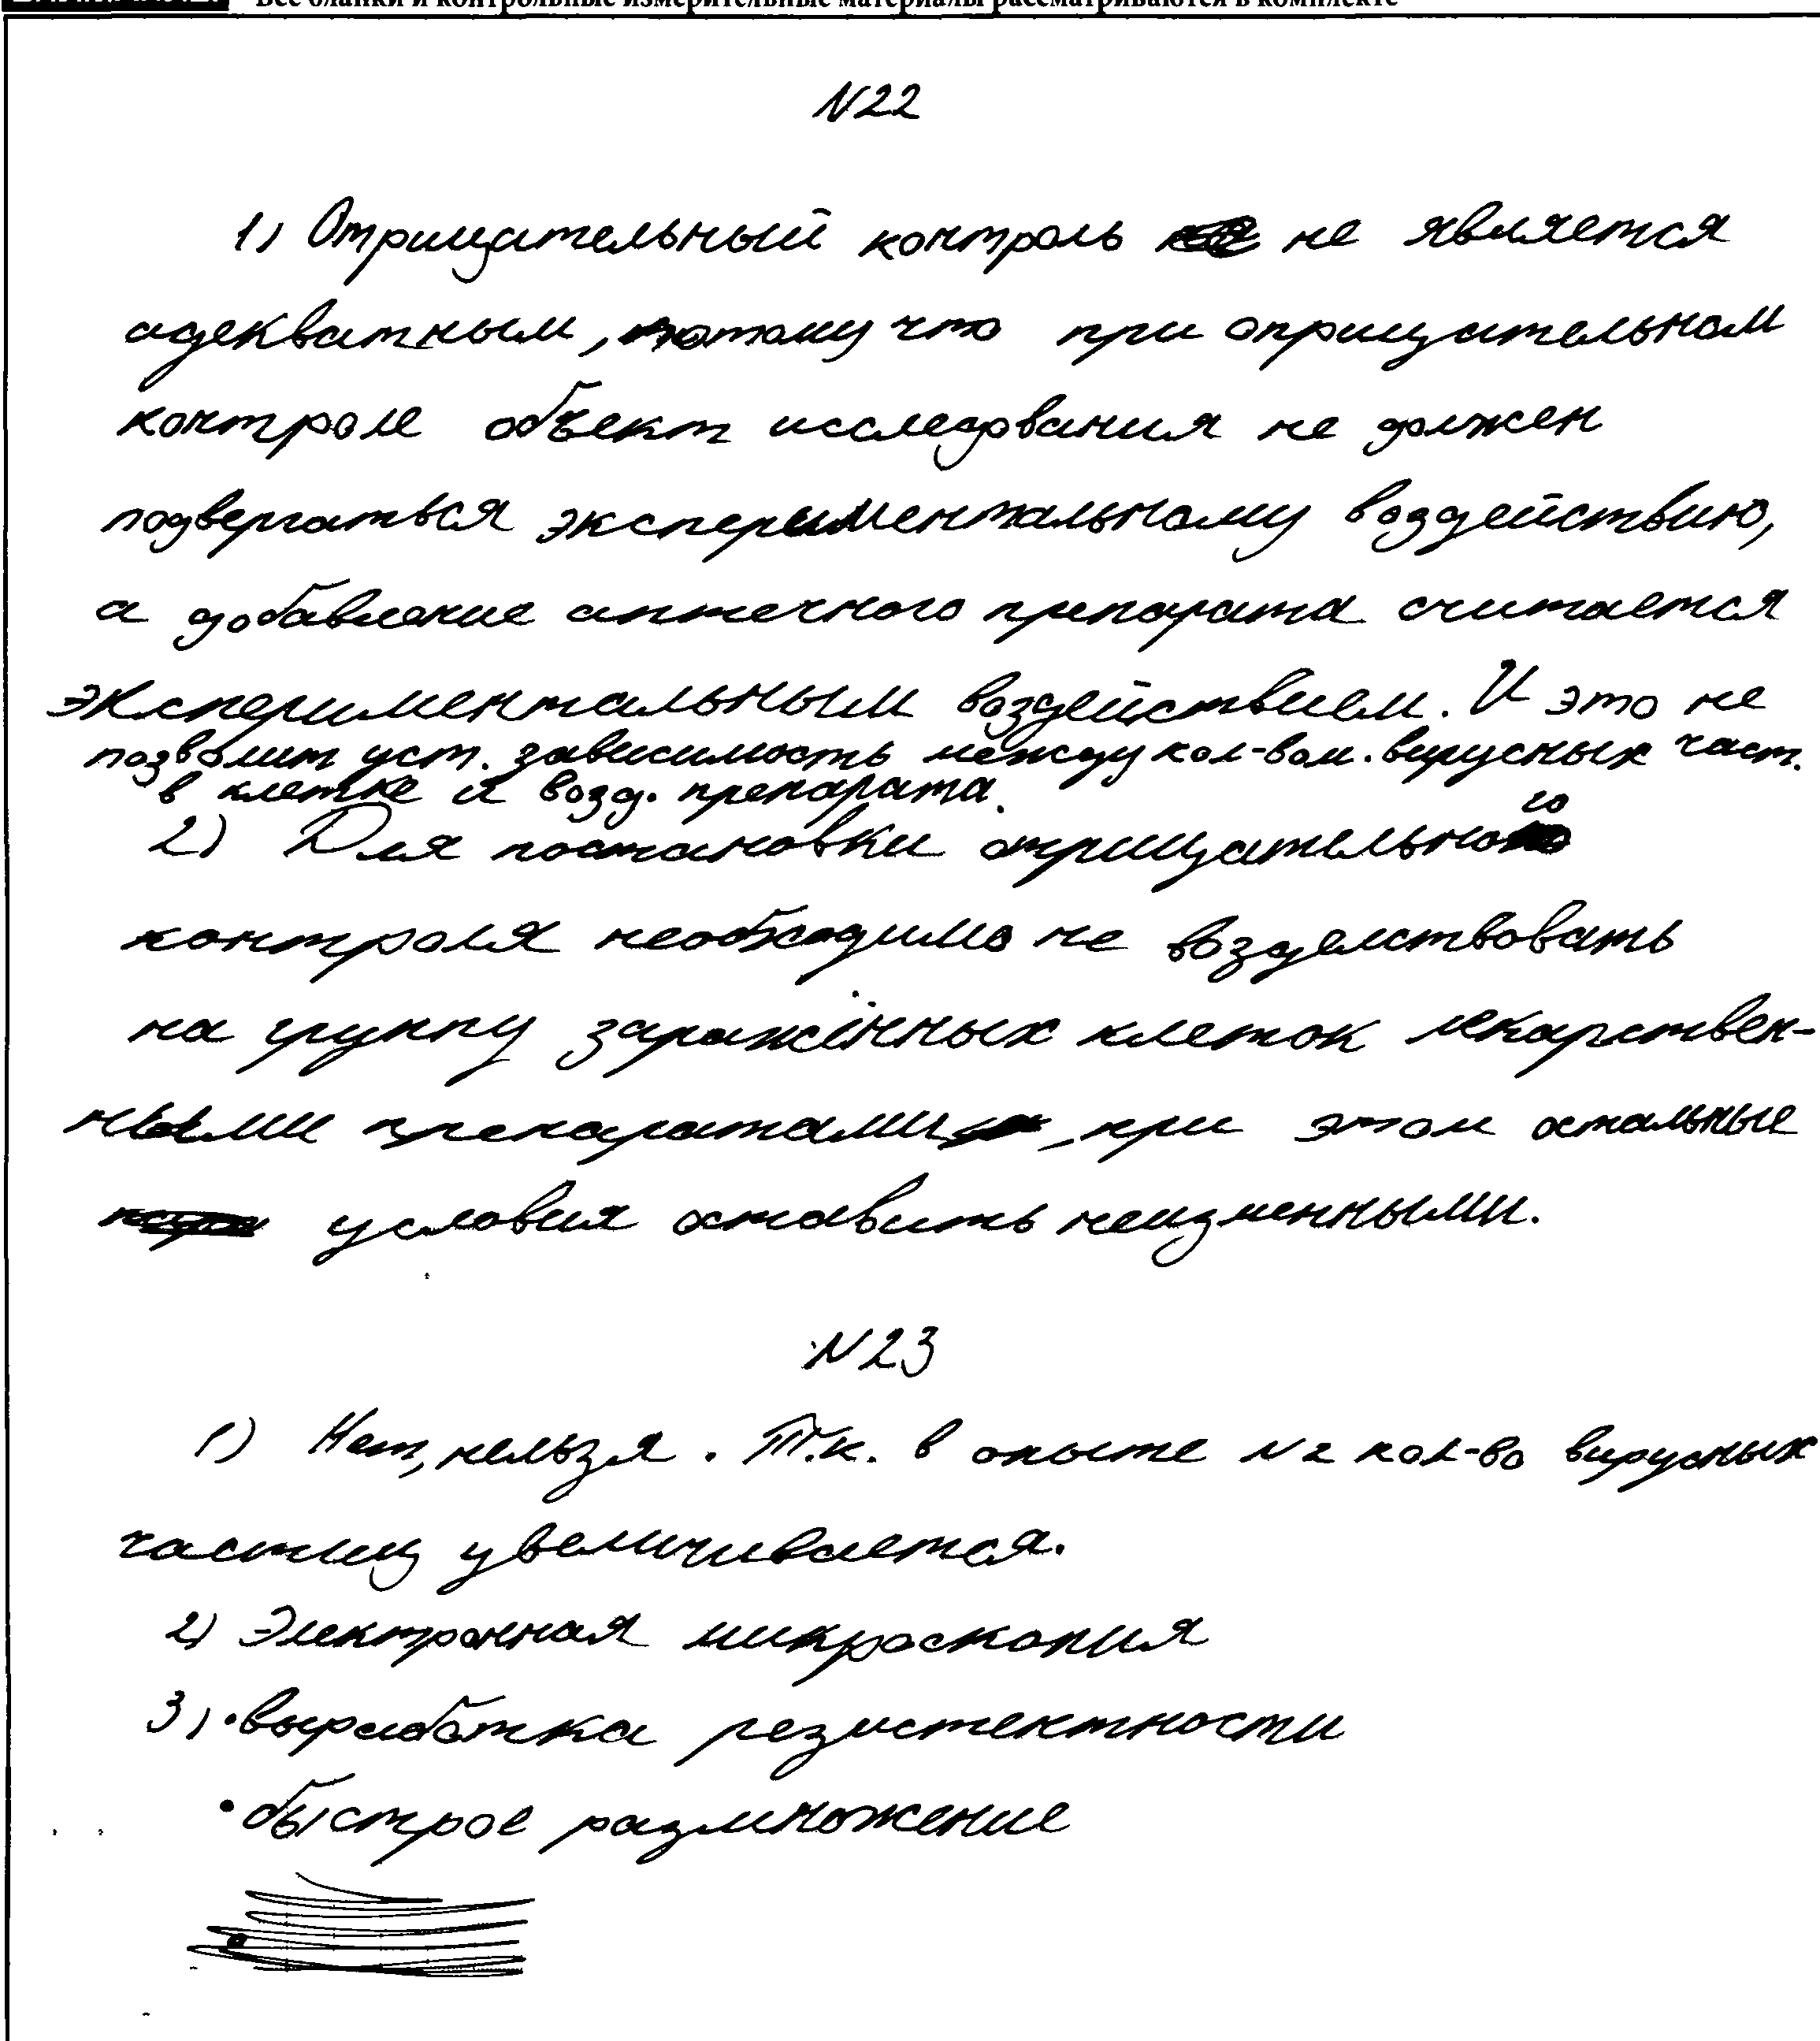 Все бланки и контрольные измерительные материалы рассматриваются в комплекте
N22
1) Отрицательный контроль не является
адекватным, потому что при отрицательном
контроле объект исследования не должен
подвергаться экспериментальному воздействию,
а добавление аптечного препарата считается
экспериментальным воздействием. И это не
позволит уст. зависимость между кол-вом. вирусных част.
в клетке и возд. препарата.
2) Для постановки отрицательного
контроля необходимо не воздействовать
на группу заражённых клеток лекарствен-
ными препаратами, при этом остальные
условия оставить неизменными.
N23
1) Нет, нельзя. Т.к. в опыте N2 кол-во вирусных
частиц увеличивается.
2) Электронная микроскопия
3) • выработка резистентности
• быстрое размножение